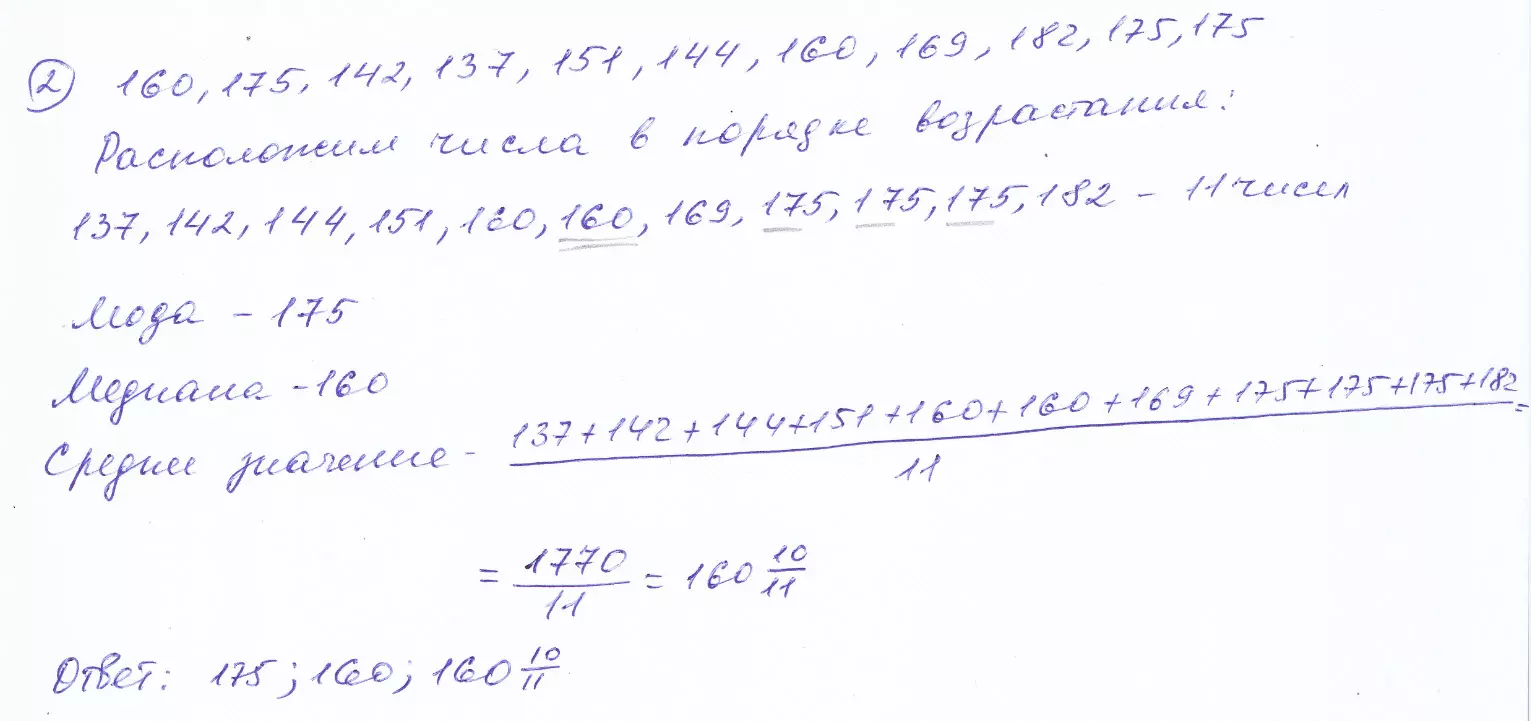 ② 160, 175, 142, 137, 151, 144, 160, 169, 182, 175, 175
Расположим числа в порядке возрастания:
137, 142, 144, 151, 160, 160, 169, 175, 175, 175, 182 - 11 чисел
Мода - 175
Медиана - 160
Средни значение - (137+142+144+151+160+160+169+175+175+175+182)/11 =
= 1770/11 = 160 10/11
Ответ: 175; 160; 160 10/11